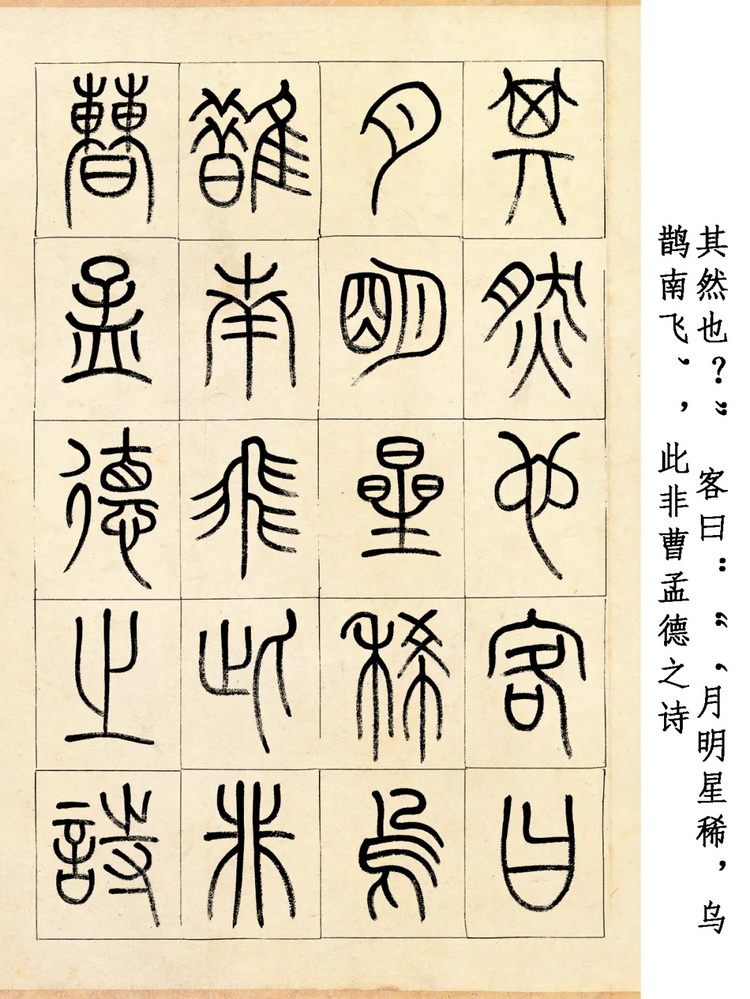 其然也客曰
月明星稀烏
鵲南飛此非
曹孟德之詩
其然也？”客曰：“‘月明星稀，乌
鹊南飞’，此非曹孟德之诗